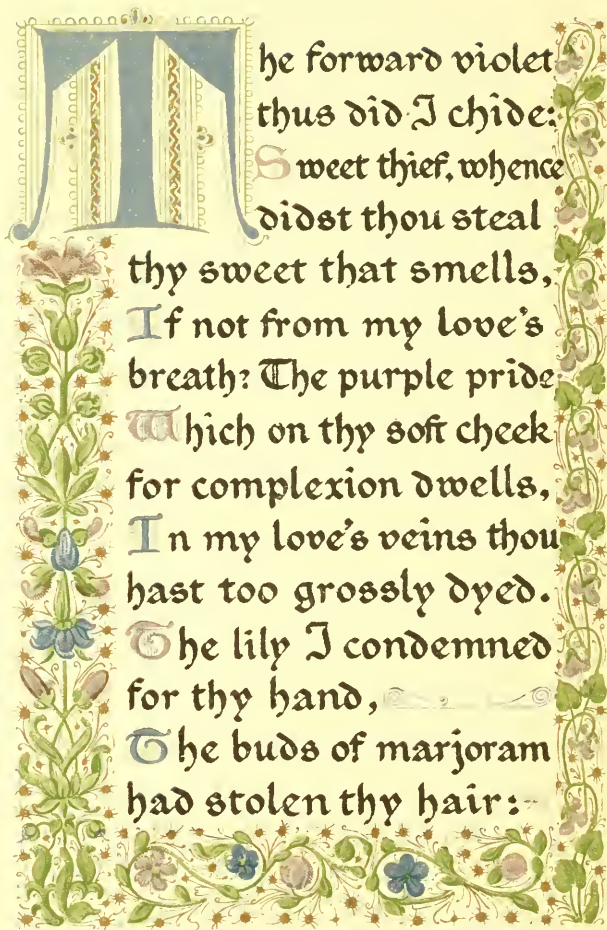 The forward violet
thus did I chide:
Sweet thief, whence
didst thou steal
thy sweet that smells,
If not from my love's
breath? The purple pride
Which on thy soft cheek
for complexion dwells,
In my love's veins thou
hast too grossly dyed.
The lily I condemned
for thy hand,
The buds of marjoram
had stolen thy hair:-